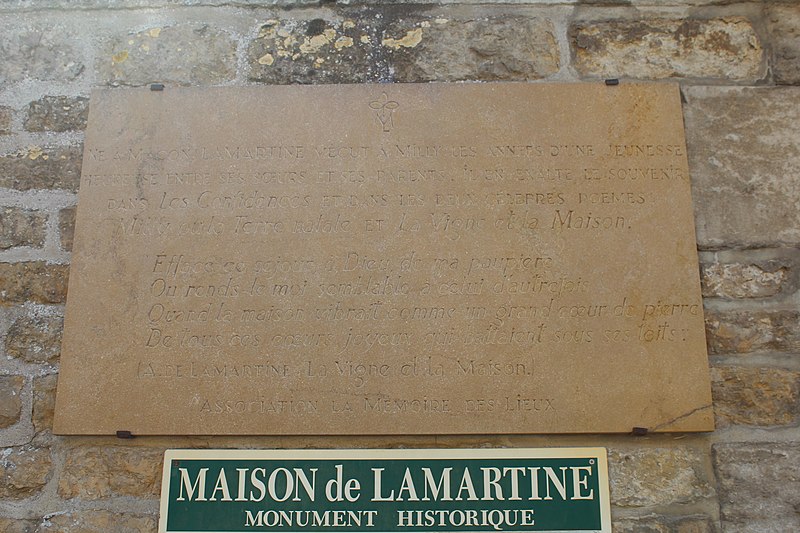 NÉ A MACON, LAMARTINE VÉCUT A MILLY LES ANNÉES D'UNE JEUNESSE
HEUREUSE ENTRE SES SŒURS ET SES PARENTS. IL EN EXALTE LE SOUVENIR
DANS Les Confidences ET DANS LES DEUX CÉLÈBRES POÈMES :
Milly ou la Terre natale ET La Vigne et la Maison.
Efface ce séjour, ô Dieu, de ma paupière
Ou rends-le moi semblable à celui d'autrefois
Quand la maison vibrait comme un grand cœur de pierre
De tous ces cœurs joyeux qui battaient sous ses toits ;
(A. DE LAMARTINE, La Vigne et la Maison.)
ASSOCIATION LA MÉMOIRE DES LIEUX
MAISON de LAMARTINE
MONUMENT HISTORIQUE